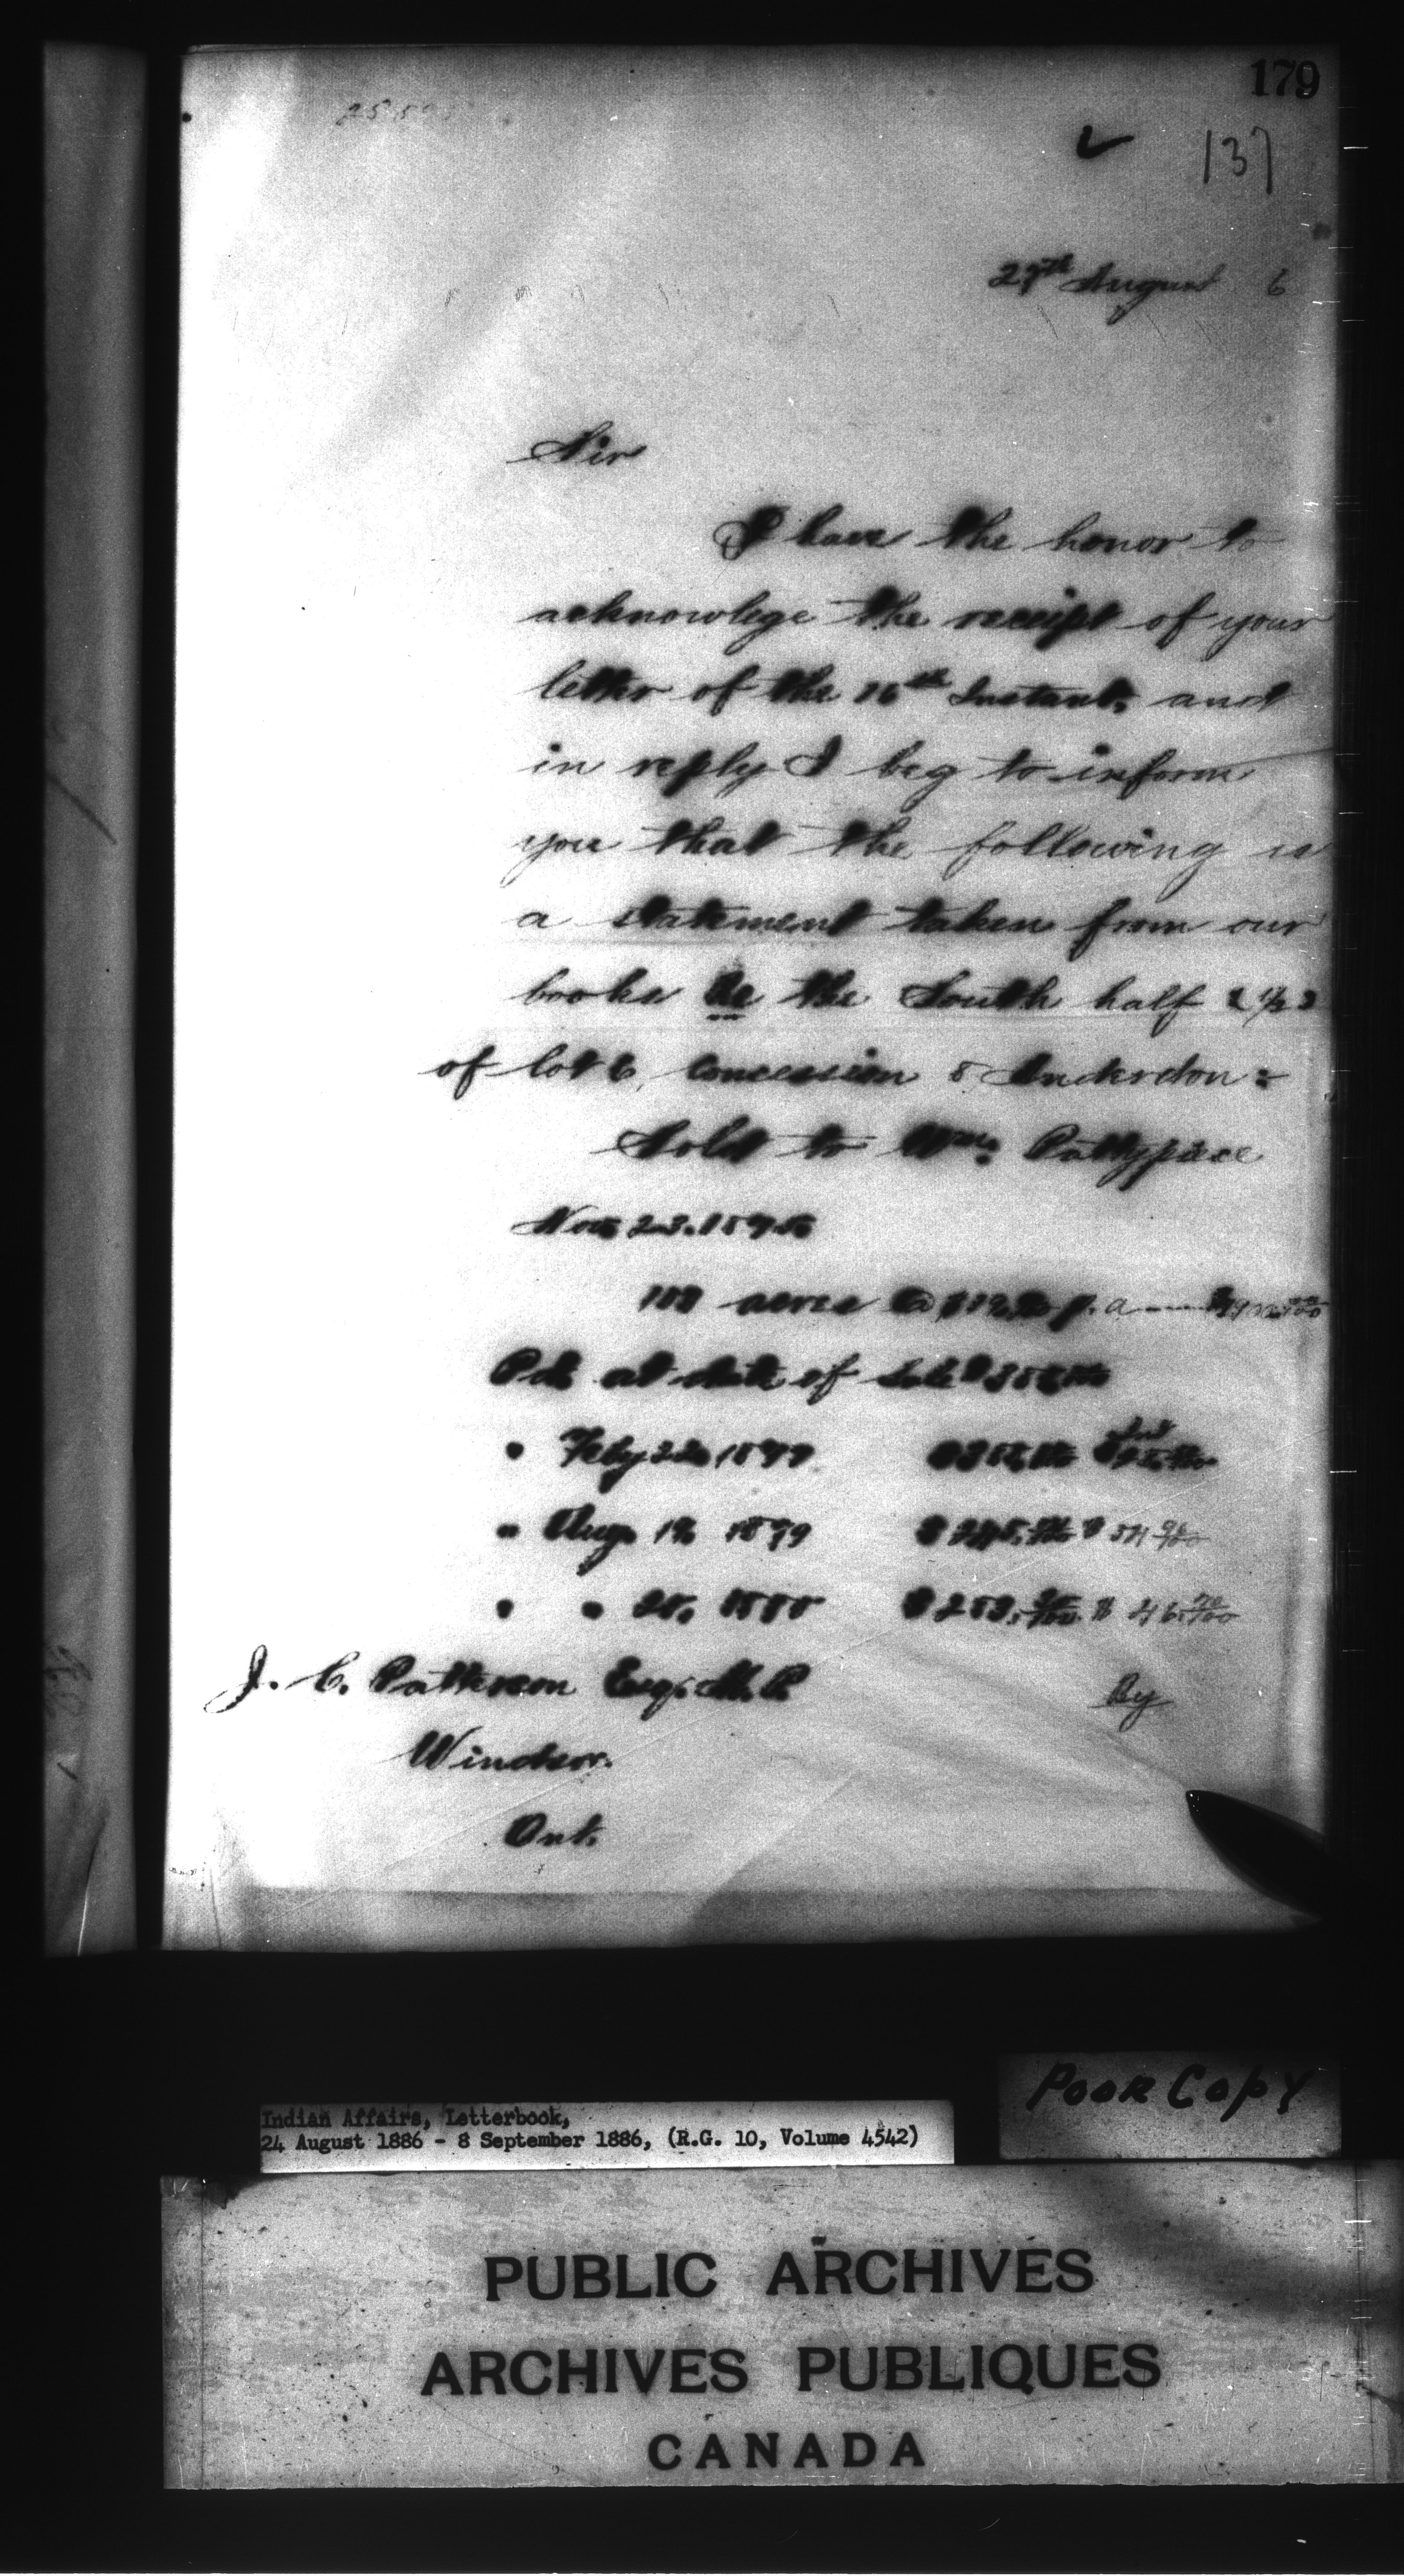 179
137
27th August 6
Sir
I have the honor to
acknowlege the receipt of your
letter of the 16th Instant, and
in reply I beg to inform
you that the following is
a statement taken from our
books Re the South half (½)
of lot 6, Concession 8 Anderdon:
Sold to Wm. Pattypiece
Nov 23.
acres @ p. a
Pd. at date of Sale
" Feby 1879
" Aug. 1879
" " 20. 1880
J. C. Patterson Esq. M.P.
By
Windsor.
Ont.
Poor Copy
Indian Affairs, Letterbook,
24 August 1886 - 8 September 1886, (R.G. 10, Volume 4542)
PUBLIC ARCHIVES
ARCHIVES PUBLIQUES
CANADA